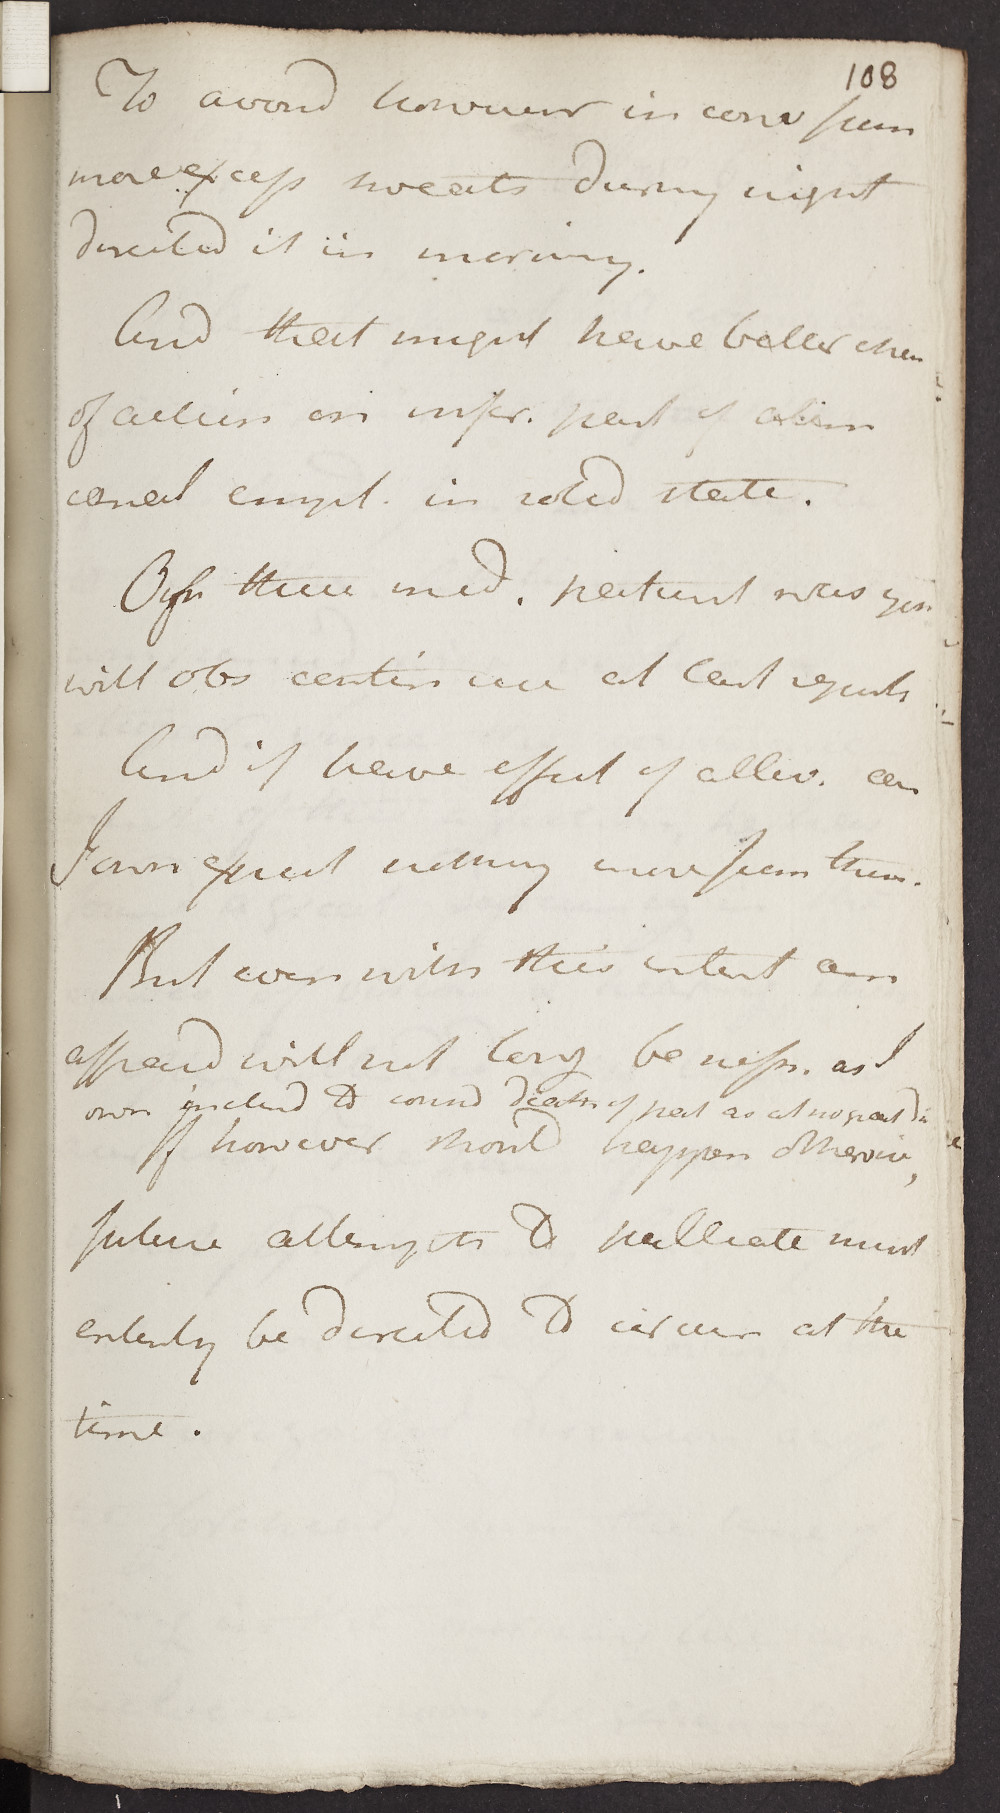 108
To avoid however inconv from
more excess sweats during night
directed it in morning.
And that might have better chan
of action on infer. part of alim
canal empl. in solid state.
Of these med. patient was
will obs continuance at last reports
And if have effect of allev. can
I own expect nothing more from them.
But even with this intent am
affraid will not long be ness. as I
own inclined to consid death of pat as at no great di
If however should happen otherwise,
future attempts to palliate must
entirely be directed to circum at the
time.